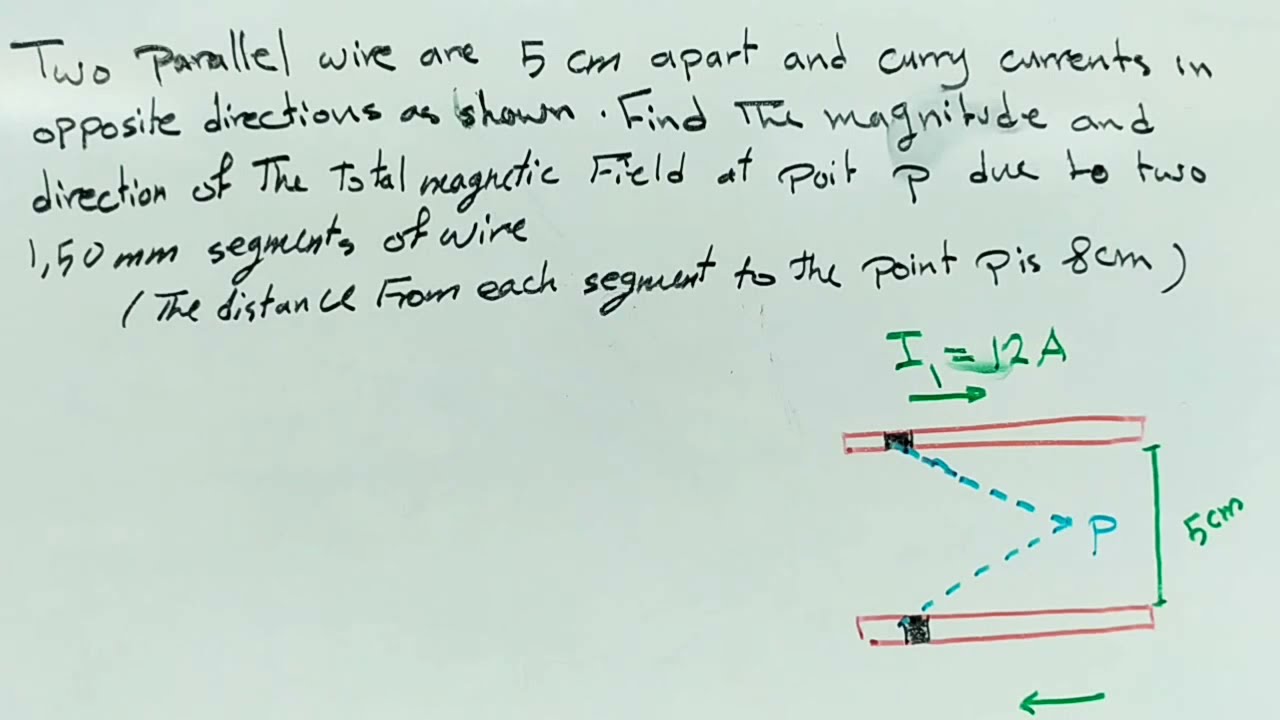 Two parallel wire are 5 cm apart and curry currents in
opposite directions as shown. Find The magnitude and
direction of The total magnetic Field at poit P due to two
1,50 mm segments of wire
(The distance From each segment to the point P is 8cm)
I₁ = 12A
P
5cm